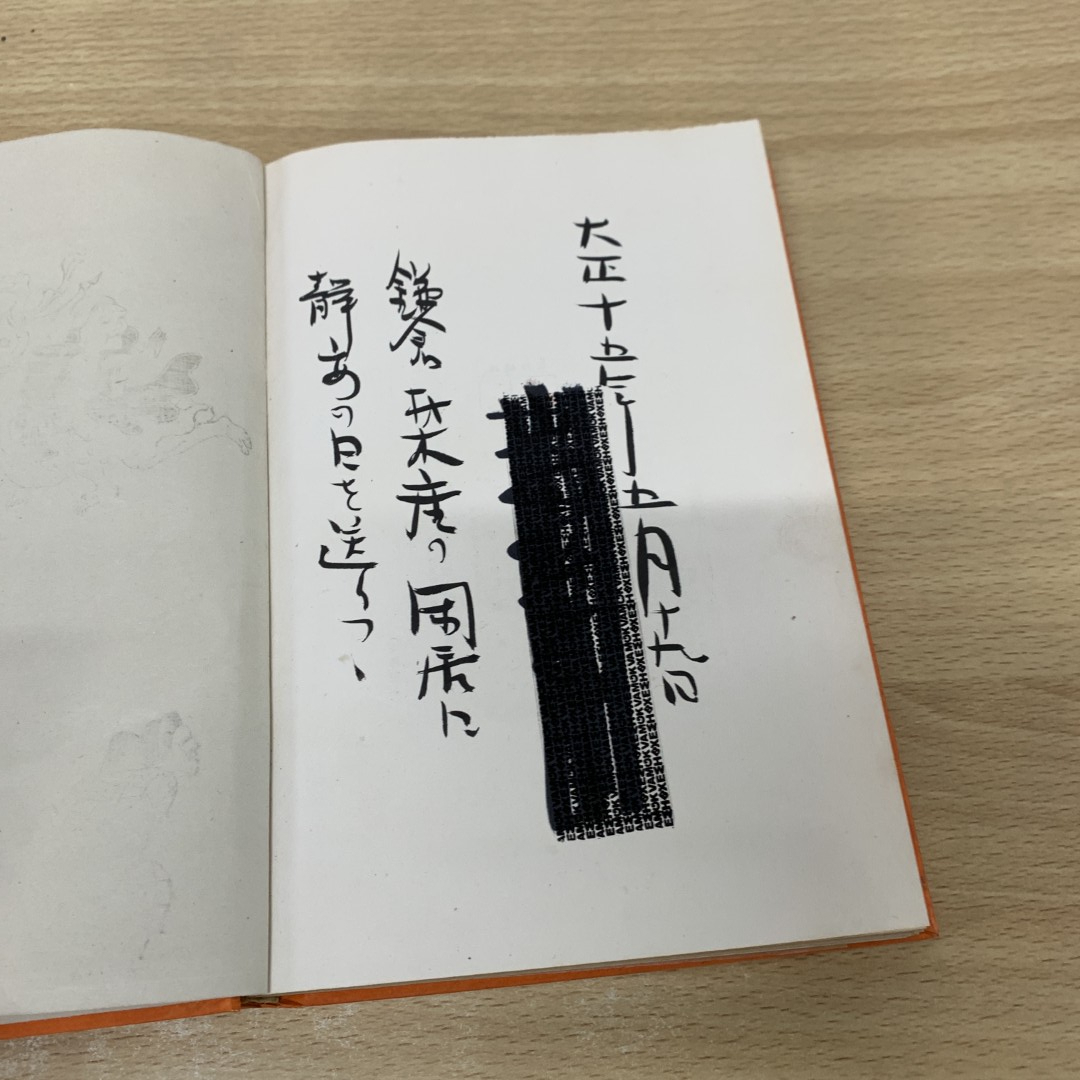 大正十五年五月十九日
鎌倉材木座の閑居に
静安の日を送りつゝ